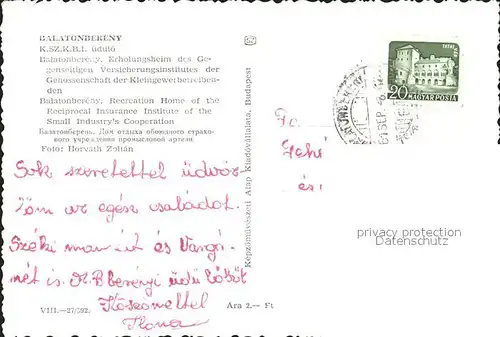 BALATONBERÉNY
K.SZ.K.B.I. üdülő
Balatonberény, Erholungsheim des Ge-
genseitigen Versicherungsinstitutes der
Genossenschaft der Kleingewerbetreiben-
den
Balatonberény, Recreation Home of the
Reciprocal Insurance Institute of the
Small Industry's Cooperation
Балатонберень. Дом отдыха обоюдного страхо-
вого учреждения промысловой артели
Foto: Horváth Zoltán
Sok szeretettel üdvöz-
löm az egész családot.
és
nét is. berényi
Köszönettel
Ilona
VIII.—27/592.
Ara 2.— Ft
Képzőművészeti Alap Kiadóvállalata, Budapest
TATAI VÁR
20
MAGYAR POSTA
61 SEP
és
privacy protection
Datenschutz